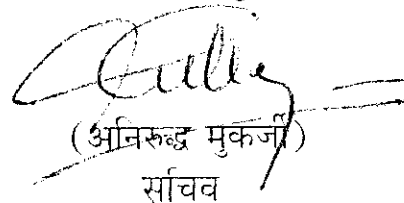 (अनिरूद्ध मुकर्जी)
सचिव